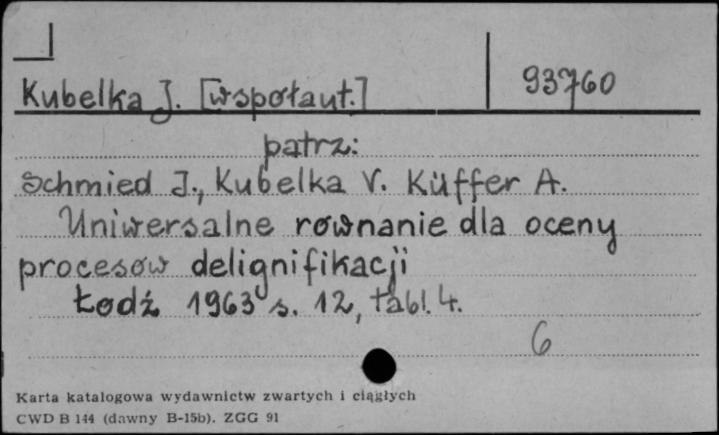 Kubelka J. [współaut.]
93760
patrz:
Schmied J., Kubelka V. Küffer A.
Uniwersalne równanie dla oceny
procesów delignifikacji
Łodź 1963 s. 12, tabl. 4.
6
Karta katalogowa wydawnictw zwartych i ciągłych
CWD B 144 (dawny B-15b). ZGG 91